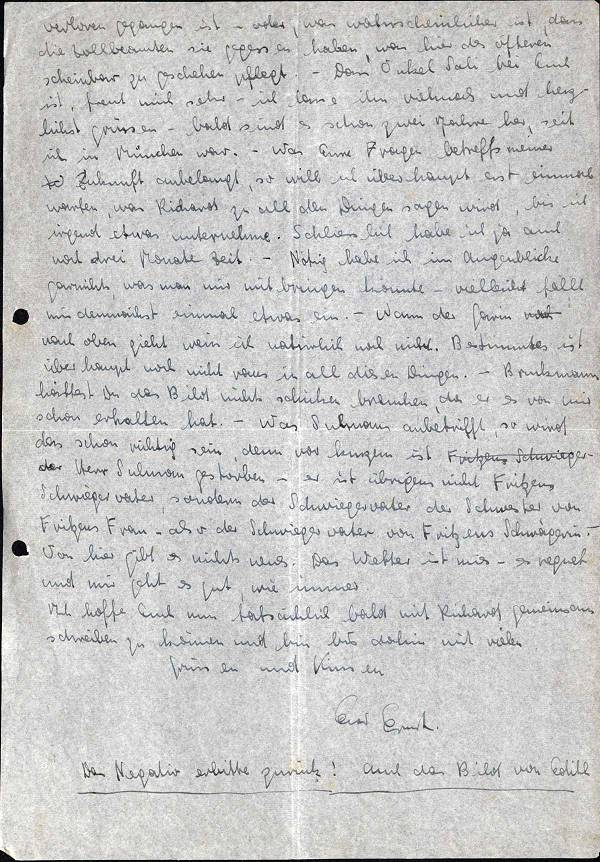 verloren gegangen ist – oder, was wahrscheinlicher ist, dass
die Zollbeamten sie gegessen haben, was hier des öfteren
scheinbar zu geschehen pflegt. – Dass Onkel Sali bei Euch
ist, freut mich sehr – ich lasse ihn vielmals und herz-
lichst grüssen – bald sind es schon zwei Jahre her, seit
ich in München war. – Was Eure Fragen betreffs meiner
Zukunft anbelangt, so will ich überhaupt erst einmal
warten, was Richard zu all den Dingen sagen wird, bis ich
irgend etwas unternehme. Schliesslich habe ich ja auch
noch drei Monate Zeit. – Nötig habe ich im Augenblicke
garnichts, was man mir mitbringen könnte – vielleicht fällt
mir demnächst einmal etwas ein. – Wann der
nach oben zieht weiss ich natürlich noch nicht. Bestimmtes ist
überhaupt noch nicht raus in all diesen Dingen. – Bruckmann
hättest Du das Bild nicht schicken brauchen, da er es von mir
schon erhalten hat. – Was Sulmann anbetrifft, so wird
das schon richtig sein, denn vor kurzem ist Fritzens Schwieger-
der Herr Sulmann gestorben – er ist übrigens nicht Fritzens
Schwiegervater, sondern der Schwiegervater der Schwester von
Fritzens Frau – also der Schwiegervater von Fritzens Schwägerin. –
Von hier gibt es nichts neues. Das Wetter ist mies – es regnet
und mir geht es gut, wie immer
Ich hoffe Euch nun tatsächlich bald mit Richard gemeinsam
schreiben zu können und bin bis dahin mit vielen
Grüssen und Küssen
Euer Ernst.
Das Negativ erbitte zurück! Auch das Bild von Edith